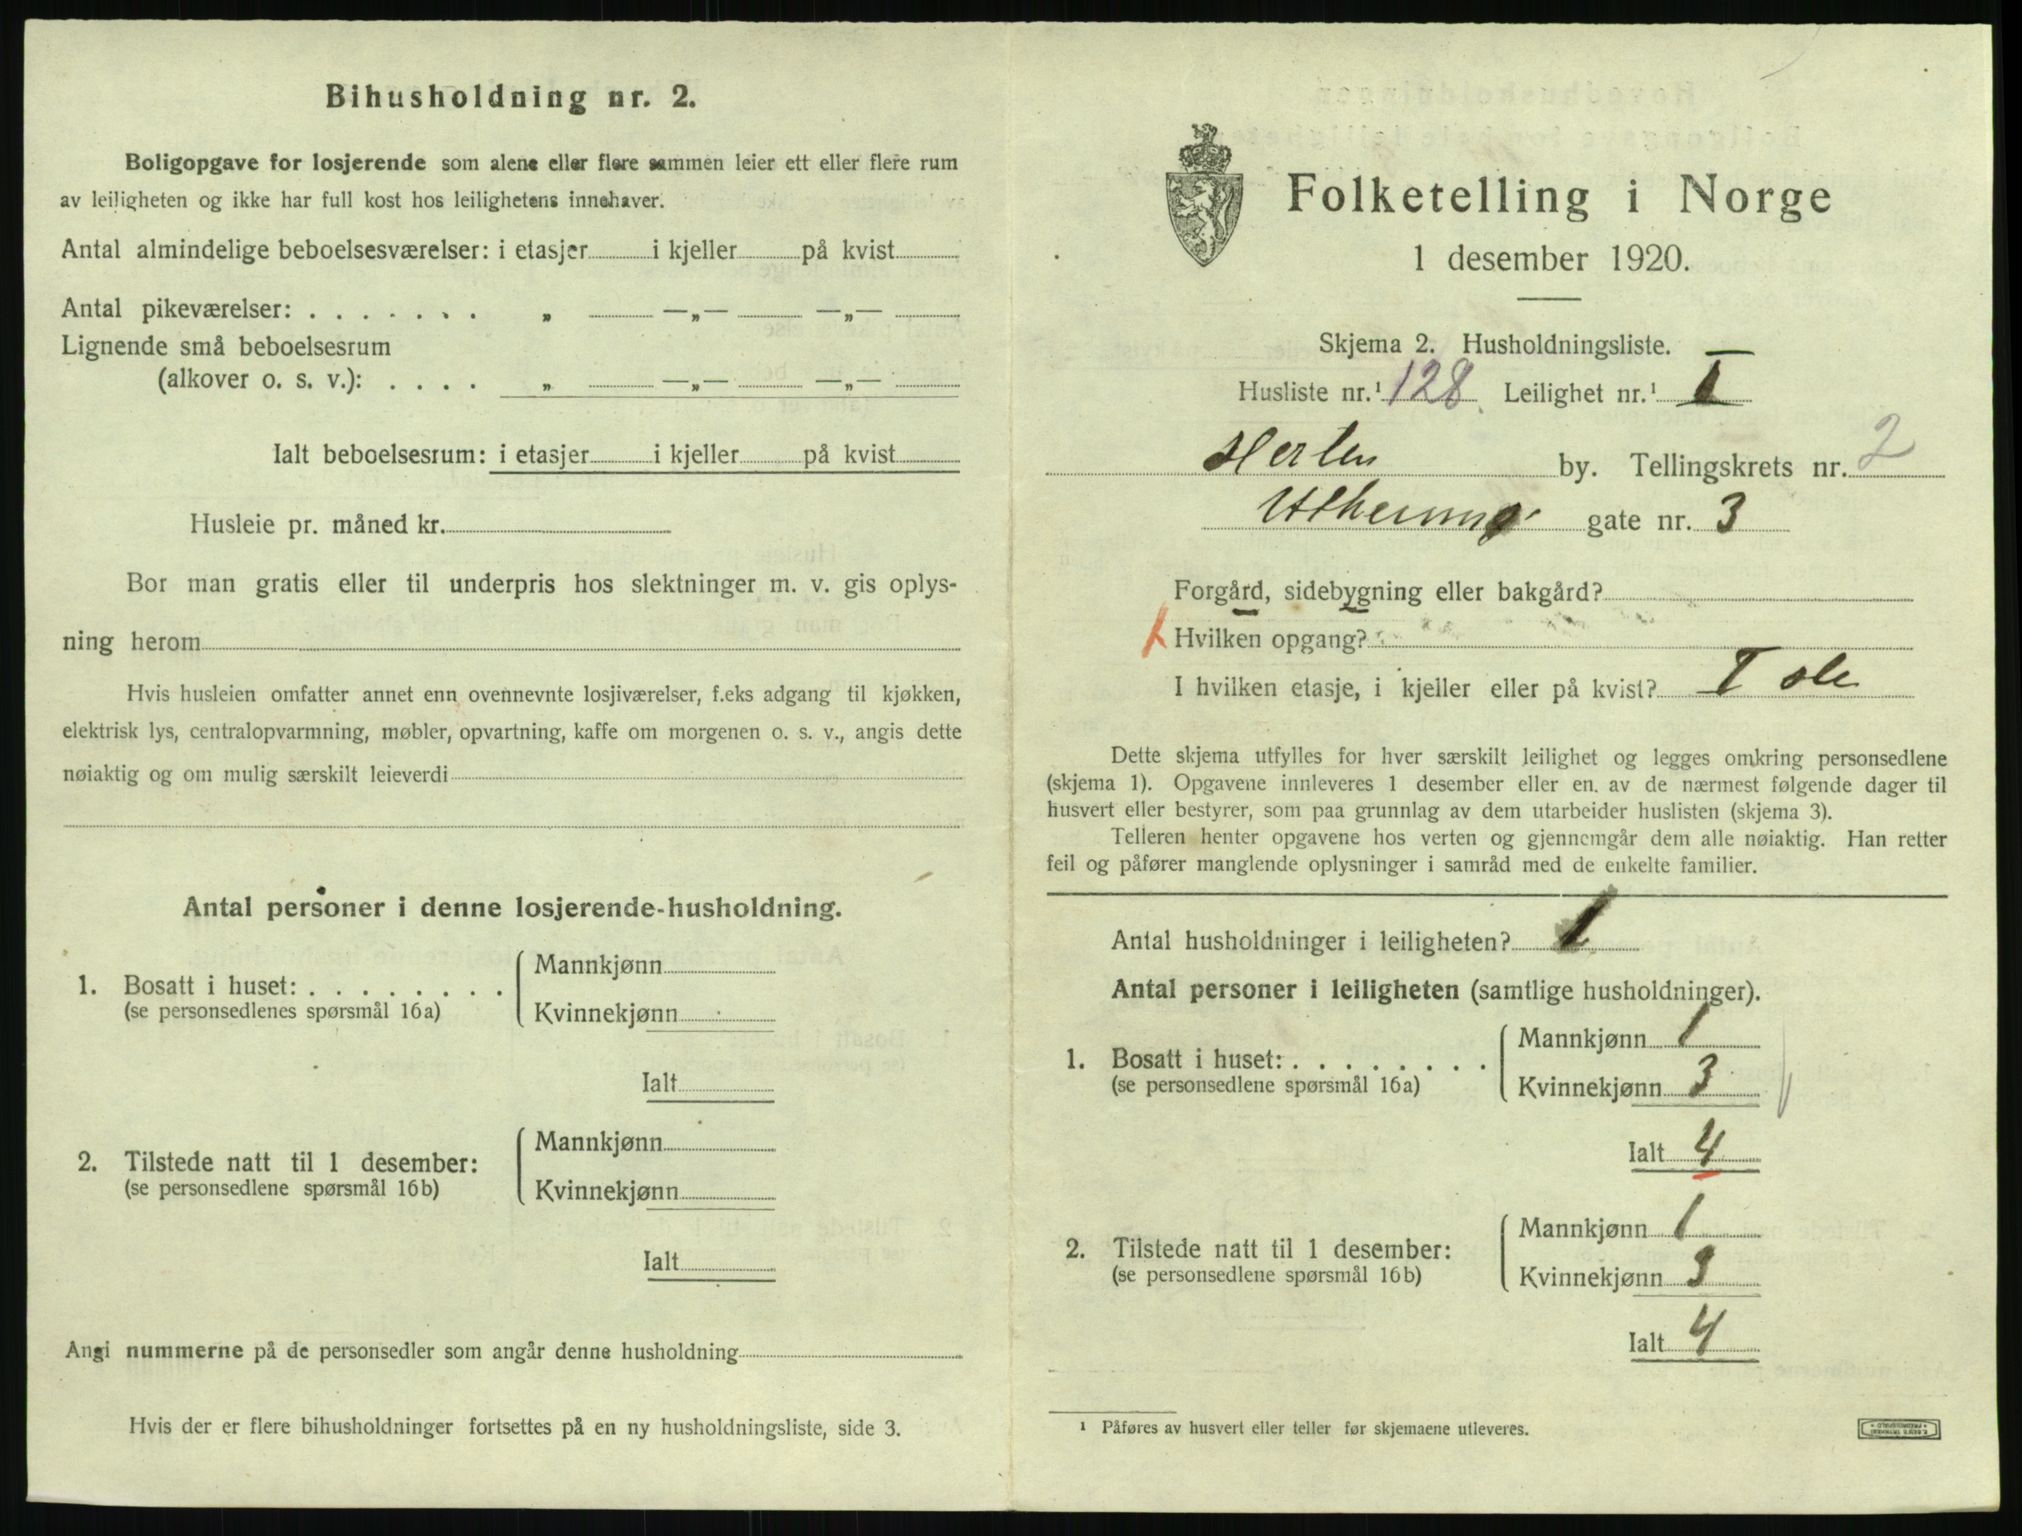 Bihusholdning nr. 2.
Boligopgave for losjerende som alene eller flere sammen leier ett eller flere rum
av leiligheten og ikke har full kost hos leilighetens innehaver.
Antal almindelige beboelsesværelser: i etasjer i kjeller på kvist
Antal pikeværelser: . . . . . . . „ —„— —„—
Lignende små beboelsesrum
(alkover o. s. v.): . . . . „ —„— —„—
Ialt beboelsesrum: i etasjer i kjeller på kvist
Husleie pr. måned kr.
Bor man gratis eller til underpris hos slektninger m. v. gis oplys-
ning herom
Hvis husleien omfatter annet enn ovennevnte losjiværelser, f.eks adgang til kjøkken,
elektrisk lys, centralopvarmning, møbler, opvartning, kaffe om morgenen o. s. v., angis dette
nøiaktig og om mulig særskilt leieverdi
Antal personer i denne losjerende-husholdning.
1. Bosatt i huset: . . . . . . . .
(se personsedlenes spørsmål 16a)
Mannkjønn
Kvinnekjønn
Ialt
2. Tilstede natt til 1 desember:
(se personsedlene spørsmål 16b)
Mannkjønn
Kvinnekjønn
Ialt
Angi nummerne på de personsedler som angår denne husholdning
Hvis der er flere bihusholdninger fortsettes på en ny husholdningsliste, side 3.
Folketelling i Norge
1 desember 1920.
Skjema 2. Husholdningsliste.
Husliste nr.¹ 128 Leilighet nr.¹ I
by. Tellingskrets nr. 2
gate nr. 3
Forgård, sidebygning eller bakgård?
Hvilken opgang?
I hvilken etasje, i kjeller eller på kvist? I
Dette skjema utfylles for hver særskilt leilighet og legges omkring personsedlene
(skjema 1). Opgavene innleveres 1 desember eller en av de nærmest følgende dager til
husvert eller bestyrer, som paa grunnlag av dem utarbeider huslisten (skjema 3).
Telleren henter opgavene hos verten og gjennemgår dem alle nøiaktig. Han retter
feil og påfører manglende oplysninger i samråd med de enkelte familier.
Antal husholdninger i leiligheten? 1
Antal personer i leiligheten (samtlige husholdninger).
1. Bosatt i huset: . . . . . . . .
(se personsedlene spørsmål 16a)
Mannkjønn 1
Kvinnekjønn 3
Ialt 4
2. Tilstede natt til 1 desember:
(se personsedlene spørsmål 16b)
Mannkjønn 1
Kvinnekjønn 3
Ialt 4
¹ Påføres av husvert eller teller før skjemaene utleveres.